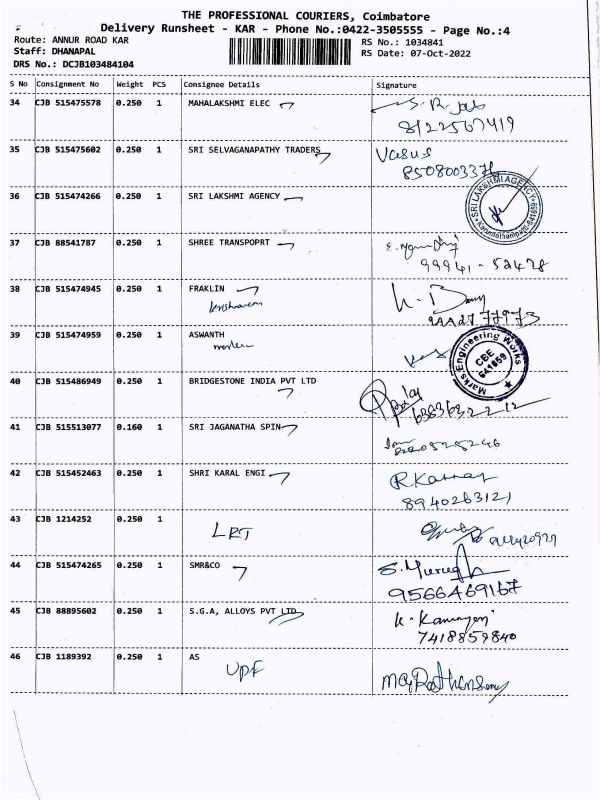 THE PROFESSIONAL COURIERS, Coimbatore
Delivery Runsheet - KAR - Phone No.:0422-3505555 - Page No.:4
Route: ANNUR ROAD KAR
RS No.: 1034841
Staff: DHANAPAL
RS Date: 07-Oct-2022
DRS No.: DCJB103484104
S No Consignment No Weight PCS Consignee Details Signature
34 CJB 515475578 0.250 1 MAHALAKSHMI ELEC
8122567419
35 CJB 515475602 0.250 1 SRI SELVAGANAPATHY TRADERS
36 CJB 515474266 0.250 1 SRI LAKSHMI AGENCY
SRI LAKSHMI AGENCY
37 CJB 88541787 0.250 1 SHREE TRANSPOPRT
99941-52478
38 CJB 515474945 0.250 1 FRAKLIN
39 CJB 515474959 0.250 1 ASWANTH
Marks Engineering Works
CBE
641659
40 CJB 515486949 0.250 1 BRIDGESTONE INDIA PVT LTD
41 CJB 515513077 0.160 1 SRI JAGANATHA SPIN
42 CJB 515452463 0.250 1 SHRI KARAL ENGI
8940263121
43 CJB 1214252 0.250 1
LRT
44 CJB 515474265 0.250 1 SMR&CO
9566469167
45 CJB 88895602 0.250 1 S.G.A, ALLOYS PVT LTD
7418859840
46 CJB 1189392 0.250 1 AS
UPF